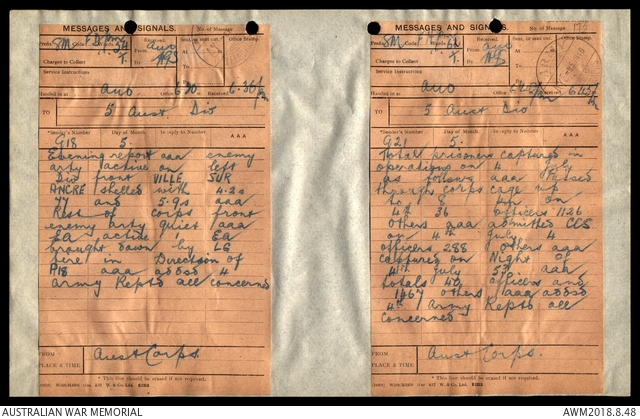 MESSAGES AND SIGNALS.
No. of Message
Prefix SM Code
Received.
Sent, or sent out.
Office Stamp.
From Auo
Charges to Collect
By
To
Service Instructions
By
Handed in at Auo 6.30 Received 6.36
TO 5 Aust Div
*Sender's Number Day of Month In reply to Number AAA
G18 5.
Evening report aaa enemy
arty active on left
Div front VILLE SUR
ANCRE shelled with 4.2s
77 and 5.9s aaa
Rest of corps front
enemy arty quiet aaa
EA active 1 EA
brought down by LG
fire in Direction of
P18 aaa addsd 4
army Repts all concerned
FROM
PLACE & TIME
Aust Corps.
* This line should be erased if not required.
MESSAGES AND SIGNALS.
No. of Message
Prefix SM Code
Received.
Sent, or sent out.
Office Stamp.
From Auo
Charges to Collect
By
To
Service Instructions
By
Handed in at Auo Received 6.45
TO 5 Aust Div
*Sender's Number Day of Month In reply to Number AAA
G21 5.
Total prisoners captured in
operations on 4 July
as follows aaa Passed
through corps cage up
to 8 pm on
4th 36 officers 1126
others aaa admitted CCS
on 4th July 4
officers 288 others aaa
captured on Night of
4th July 53 aaa
totals 40 officers and
1467 others aaa addsd
4th Army Repts all
concerned
FROM
PLACE & TIME
Aust Corps.
* This line should be erased if not required.
AUSTRALIAN WAR MEMORIAL
AWM2018.8.48